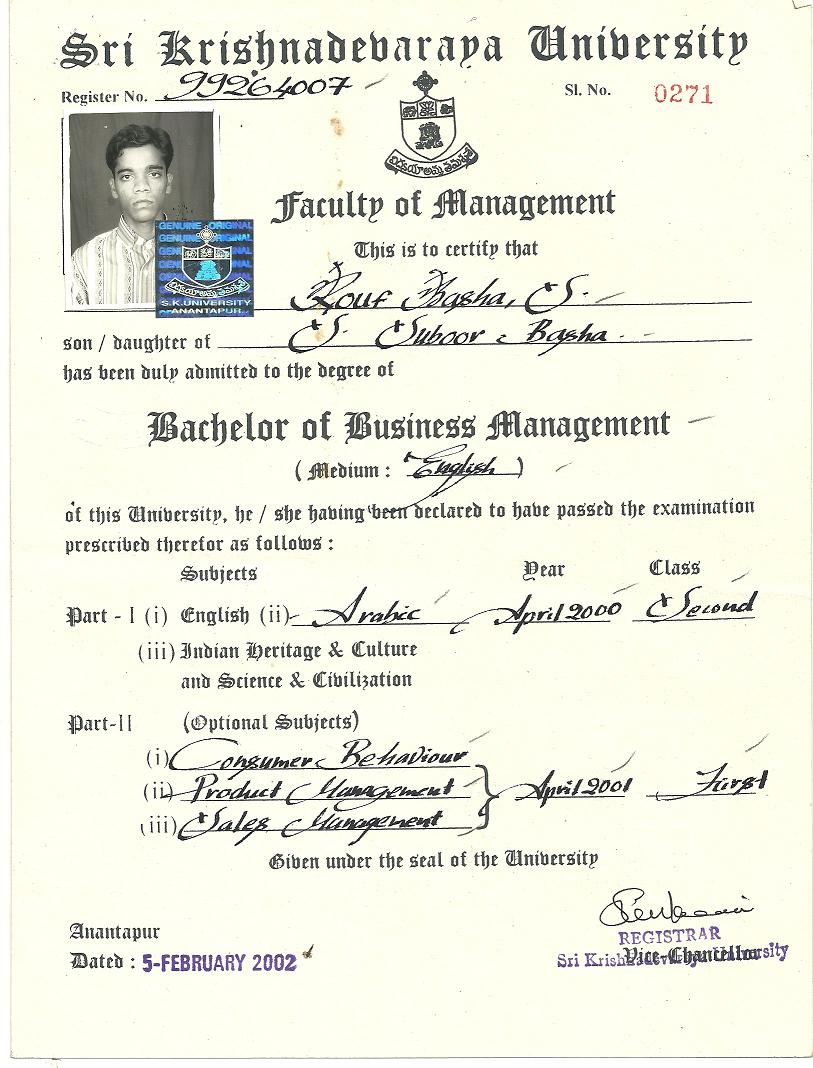 Sri Krishnadevaraya University
Register No. 99264007 Sl. No. 0271
Faculty of Management
This is to certify that
GENUINE ORIGINAL
S.K.UNIVERSITY
ANANTAPUR.
Rouf Basha, S.
son / daughter of S. Suboor Basha
has been duly admitted to the degree of
Bachelor of Business Management
( Medium : English )
of this University, he / she having been declared to have passed the examination
prescribed therefor as follows :
Subjects Year Class
Part - I (i) English (ii) Arabic April 2000 Second
(iii) Indian Heritage & Culture
and Science & Civilization
Part-II (Optional Subjects)
(i) Consumer Behaviour
(ii) Product Management April 2001 First
(iii) Sales Management
Given under the seal of the University
Anantapur
REGISTRAR
Dated : 5-FEBRUARY 2002 Vice-Chancellor
Sri Krishnadevaraya University